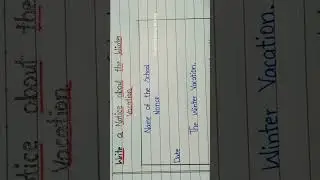 Write a Notice about the Winter
Vacation
Name of the School
Notice
Date
The Winter Vacation.
tice about the
Vacation
Winter Vacation.